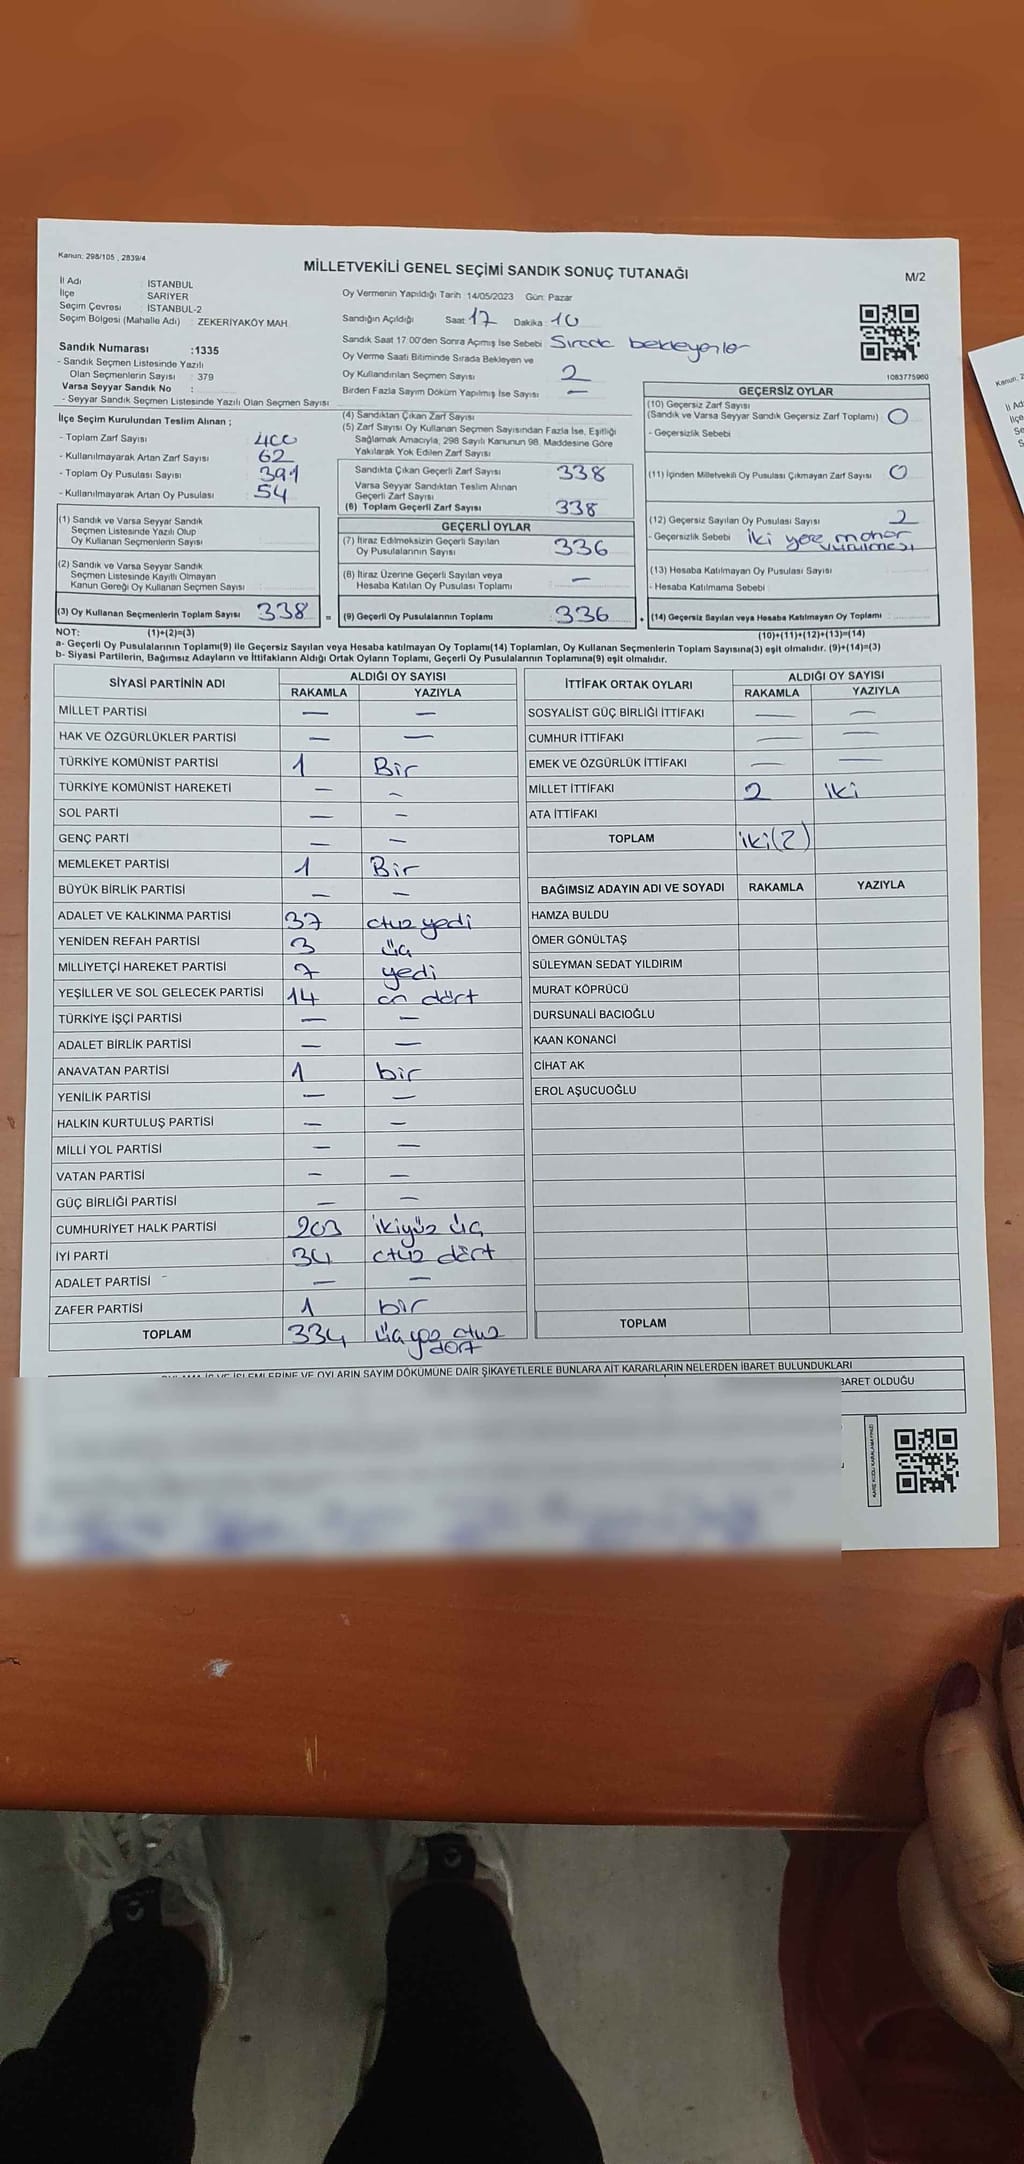 Kanun: 298/105 , 2839/4
MİLLETVEKİLİ GENEL SEÇİMİ SANDIK SONUÇ TUTANAĞI
M/2
İl Adı : İSTANBUL
İlçe : SARIYER
Seçim Çevresi : İSTANBUL-2
Seçim Bölgesi (Mahalle Adı) : ZEKERİYAKÖY MAH.
Sandık Numarası :1335
- Sandık Seçmen Listesinde Yazılı
Olan Seçmenlerin Sayısı : 379
Varsa Seyyar Sandık No :
- Seyyar Seçmen Listesinde Yazılı Olan Seçmen Sayısı
Oy Vermenin Yapıldığı Tarih :14/05/2023 Gün: Pazar
Sandığın Açıldığı Saat: 17 Dakika: 10
Sandık Saat 17:00'den Sonra Açımış İse Sebebi Sırada bekleyenler
Oy Verme Saati Bitiminde Sırada Bekleyen ve
Oy Kullandırılan Seçmen Sayısı 2
Birden Fazla Sayım Döküm Yapılmış İse Sayısı —
1083775960
İlçe Seçim Kurulundan Teslim Alınan ;
- Toplam Zarf Sayısı 400
- Kullanılmayarak Artan Zarf Sayısı 62
- Toplam Oy Pusulası Sayısı 391
- Kullanılmayarak Artan Oy Pusulası 54
(1) Sandık ve Varsa Seyyar Sandık
Seçmen Listesinde Yazılı Olup
Oy Kullanan Seçmenlerin Sayısı
(2) Sandık ve Varsa Seyyar Sandık
Seçmen Listesinde Kayıtlı Olmayan
Kanun Gereği Oy Kullanan Seçmen Sayısı
(3) Oy Kullanan Seçmenlerin Toplam Sayısı 338 =
(4) Sandıktan Çıkan Zarf Sayısı
(5) Zarf Sayısı Oy Kullanan Seçmen Sayısından Fazla İse, Eşitliği
Sağlamak Amacıyla, 298 Sayılı Kanunun 98. Maddesine Göre
Yakılarak Yok Edilen Zarf Sayısı
Sandıkta Çıkan Geçerli Zarf Sayısı 338
Varsa Seyyar Sandıktan Teslim Alınan
Geçerli Zarf Sayısı
(6) Toplam Geçerli Zarf Sayısı 338
GEÇERLİ OYLAR
(7) İtiraz Edilmeksizin Geçerli Sayılan
Oy Pusulalarının Sayısı 336
(8) İtiraz Üzerine Geçerli Sayılan veya
Hesaba Katılan Oy Pusulası Toplamı —
(9) Geçerli Oy Pusulalarının Toplamı 336 +
GEÇERSİZ OYLAR
(10) Geçersiz Zarf Sayısı
(Sandık ve Varsa Seyyar Sandık Geçersiz Zarf Toplamı) 0
- Geçersizlik Sebebi
(11) İçinden Milletvekili Oy Pusulası Çıkmayan Zarf Sayısı 0
(12) Geçersiz Sayılan Oy Pusulası Sayısı 2
- Geçersizlik Sebebi iki yere mühür
vurulması
(13) Hesaba Katılmayan Oy Pusulası Sayısı
- Hesaba Katılmama Sebebi
(14) Geçersiz Sayılan veya Hesaba Katılmayan Oy Toplamı
NOT: (1)+(2)=(3) (10)+(11)+(12)+(13)=(14)
a- Geçerli Oy Pusulalarının Toplamı(9) ile Geçersiz Sayılan veya Hesaba katılmayan Oy Toplamı(14) Toplamları, Oy Kullanan Seçmenlerin Toplam Sayısına(3) eşit olmalıdır. (9)+(14)=(3)
b- Siyasi Partilerin, Bağımsız Adayların ve İttifakların Aldığı Ortak Oyların Toplamı, Geçerli Oy Pusulalarının Toplamına(9) eşit olmalıdır.
SİYASİ PARTİNİN ADI ALDIĞI OY SAYISI
RAKAMLA YAZIYLA
MİLLET PARTİSİ — —
HAK VE ÖZGÜRLÜKLER PARTİSİ — —
TÜRKİYE KOMÜNİST PARTİSİ 1 Bir
TÜRKİYE KOMÜNİST HAREKETİ — —
SOL PARTİ — —
GENÇ PARTİ — —
MEMLEKET PARTİSİ 1 Bir
BÜYÜK BİRLİK PARTİSİ — —
ADALET VE KALKINMA PARTİSİ 37 otuz yedi
YENİDEN REFAH PARTİSİ 3 üç
MİLLİYETÇİ HAREKET PARTİSİ 7 yedi
YEŞİLLER VE SOL GELECEK PARTİSİ 14 on dört
TÜRKİYE İŞÇİ PARTİSİ — —
ADALET BİRLİK PARTİSİ — —
ANAVATAN PARTİSİ 1 bir
YENİLİK PARTİSİ — —
HALKIN KURTULUŞ PARTİSİ — —
MİLLİ YOL PARTİSİ — —
VATAN PARTİSİ — —
GÜÇ BİRLİĞİ PARTİSİ — —
CUMHURİYET HALK PARTİSİ 203 ikiyüz üç
İYİ PARTİ 34 otuz dört
ADALET PARTİSİ — —
ZAFER PARTİSİ 1 bir
TOPLAM 334 üç yüz otuz
dört
İTTİFAK ORTAK OYLARI ALDIĞI OY SAYISI
RAKAMLA YAZIYLA
SOSYALİST GÜÇ BİRLİĞİ İTTİFAKI — —
CUMHUR İTTİFAKI — —
EMEK VE ÖZGÜRLÜK İTTİFAKI — —
MİLLET İTTİFAKI 2 iki
ATA İTTİFAKI
TOPLAM iki(2)
BAĞIMSIZ ADAYIN ADI VE SOYADI RAKAMLA YAZIYLA
HAMZA BULDU
ÖMER GÖNÜLTAŞ
SÜLEYMAN SEDAT YILDIRIM
MURAT KÖPRÜCÜ
DURSUNALİ BACIOĞLU
KAAN KONANCİ
CİHAT AK
EROL AŞUCUOĞLU
TOPLAM
İŞLEMLERİNE VE OYLARIN SAYIM DÖKÜMÜNE DAİR ŞİKAYETLERLE BUNLARA AİT KARARLARIN NELERDEN İBARET BULUNDUKLARI
BARET OLDUĞU